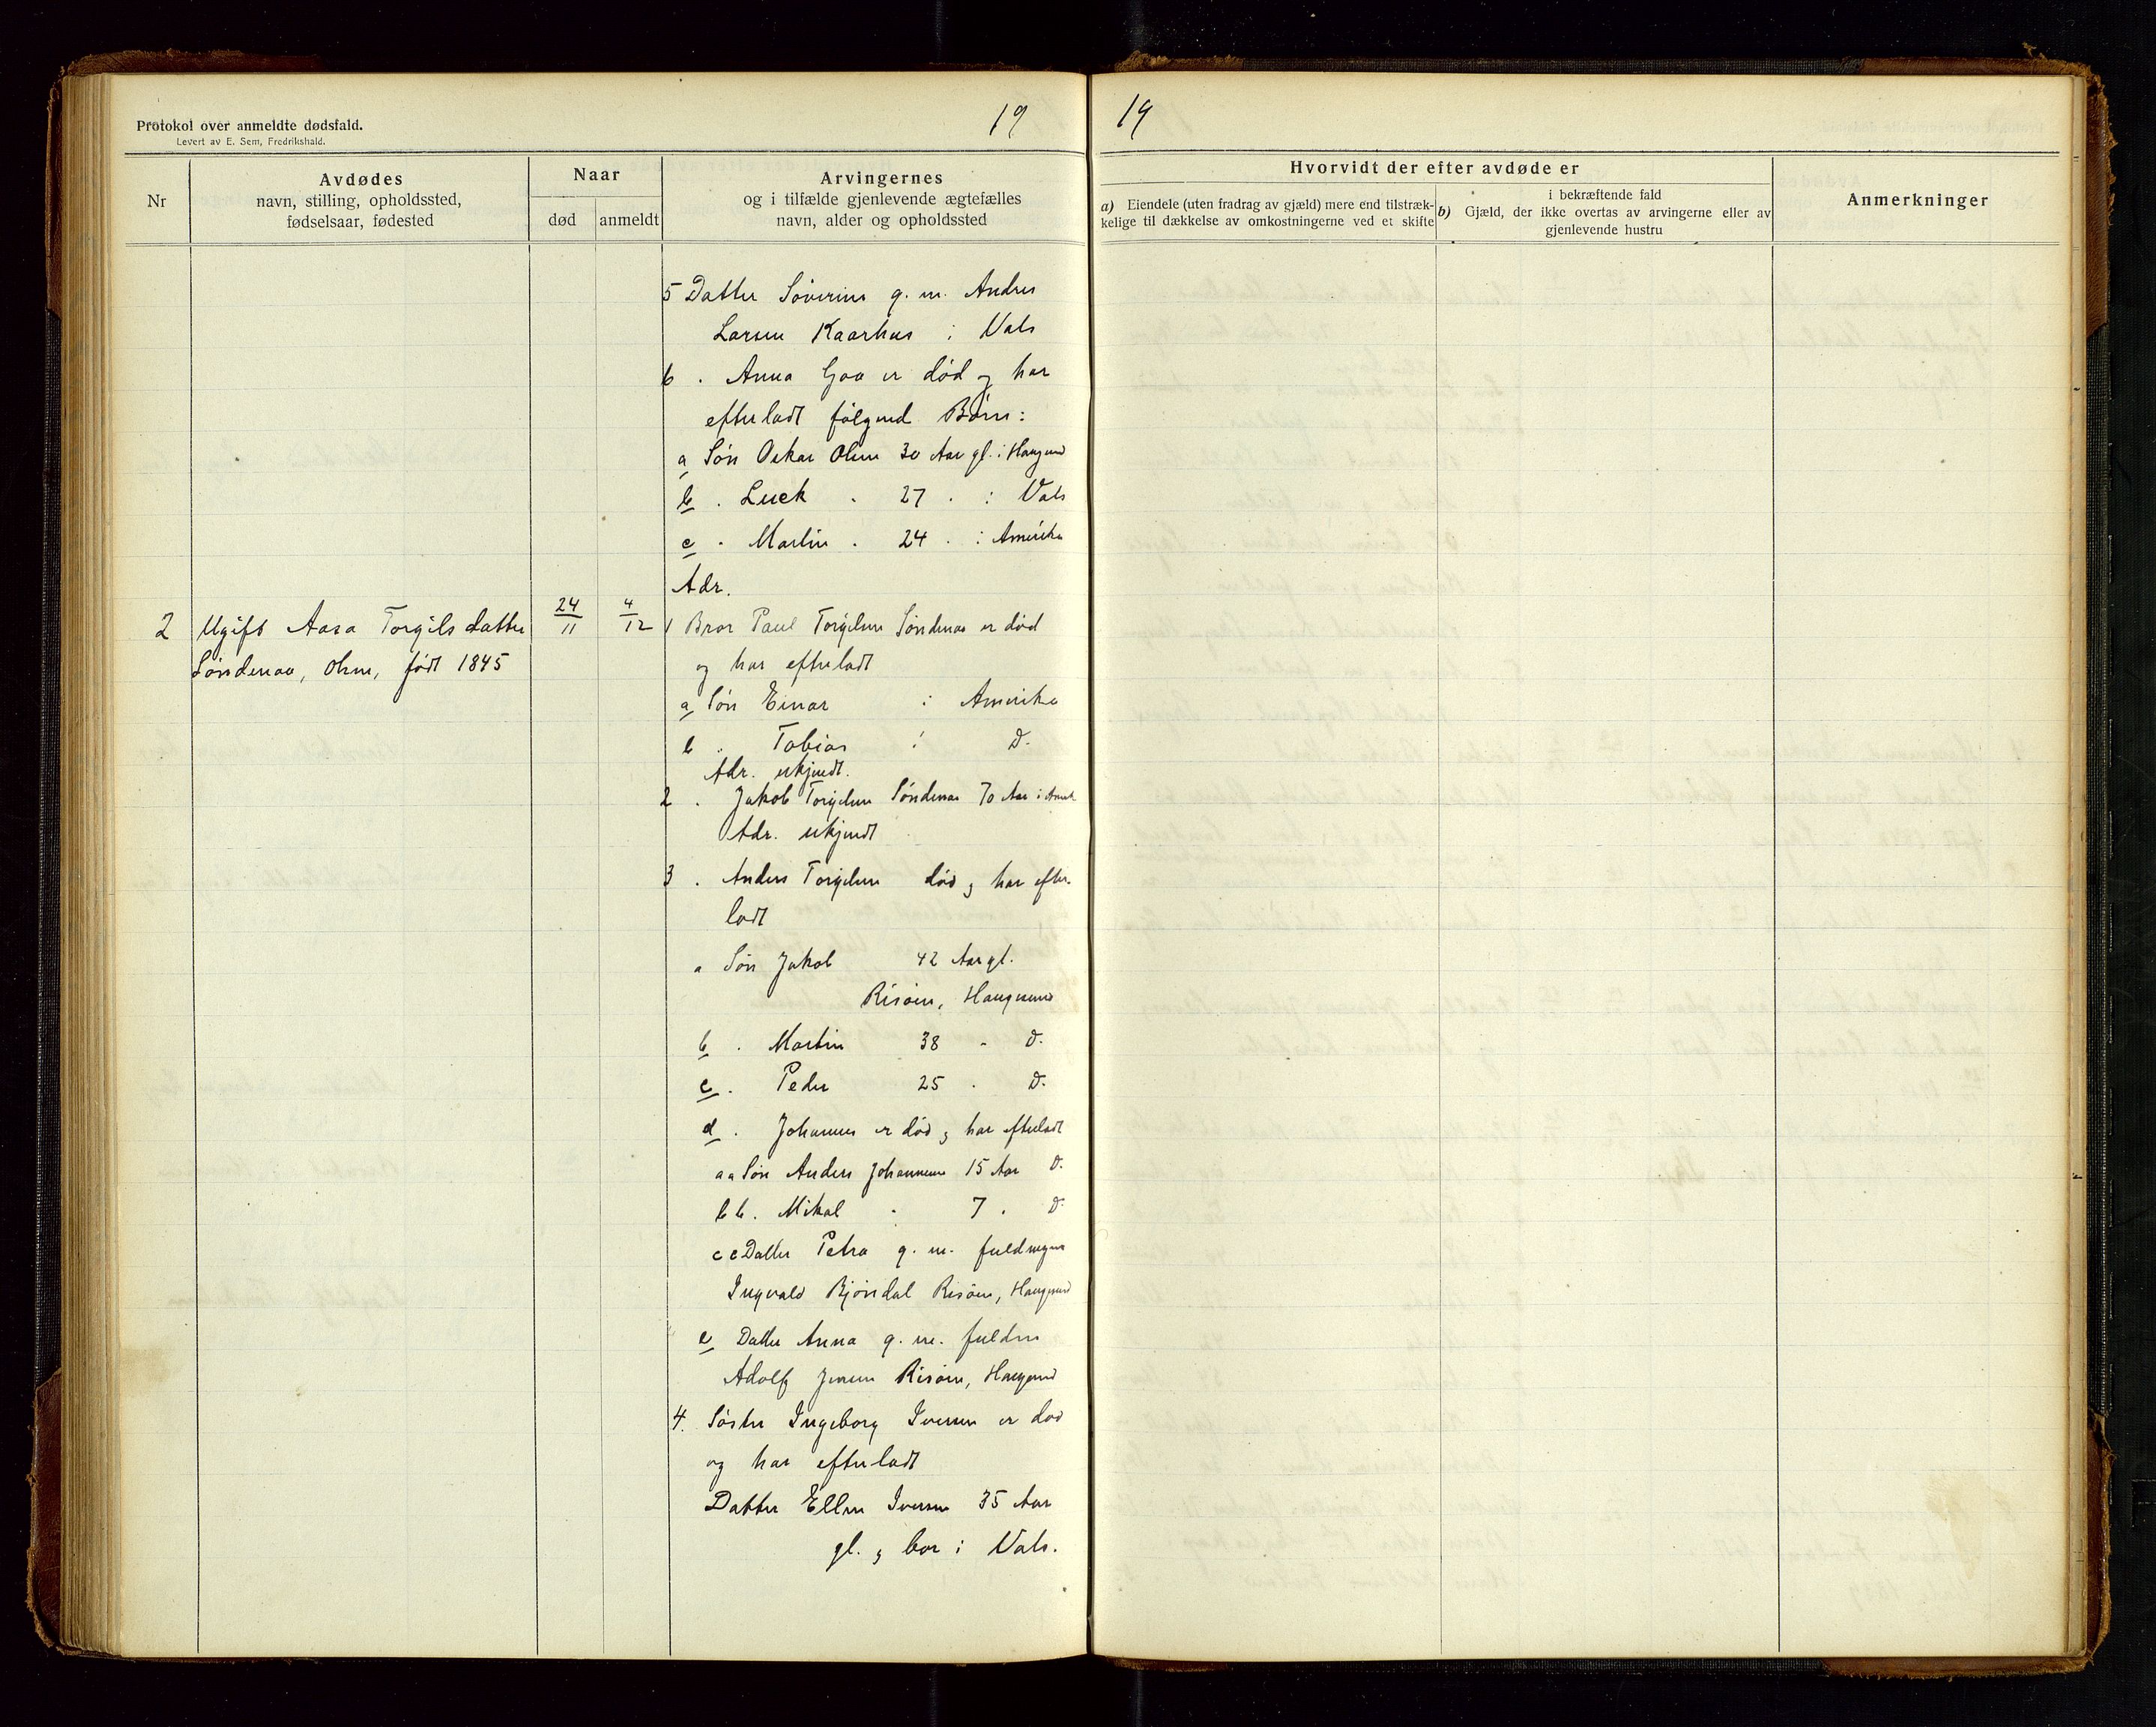 Protokol over anmeldte dødsfald.
Levert av E. Sem, Fredrikshald.
19
Nr
Avdødes
navn, stilling, opholdssted,
fødselsaar, fødested
Naar
død
anmeldt
Arvingernes
og i tilfælde gjenlevende ægtefælles
navn, alder og opholdssted
5 Datter Søverine g. m. Andres
Larsen Kaarhus i Vats
6 . Anna Gaa er død og har
efterladt følgend Børn:
a Søn Oskar Olsen 30 Aar gl. i Haugesund
b . . 27 . i Vats
c . Martin . 24 . i Amerika
Adr.
2 Ugift Aasa Torgilsdatter 24/11 4/12 1 Bror Paul Torgilsen Søndenaa er død
Søndenaa, Ølen, født 1845
og har efterladt
a Søn Einar i Amerika
b .. Tobias i D.
Adr. ukjendt.
2 . Jakob Torgilsen Søndenaa 70 Aar i Amerik
Adr. ukjendt
3 . Anders Torgilsen død og har efter-
ladt
a Søn Jakob 42 Aar gl.
Risøen, Haugesund
b . Martin 38 - D.
c . Peder 25 . D.
d . Johannes er død og har efterladt
aa Søn Anders Johannessen 15 Aar D.
bb . Mikal . 7 . D.
cc Datter Petra g. m.
Ingvald Bjøndal Risøen, Haugesund
e Datter Anna g. m.
Adolf Jensen Risøen, Haugesund
4. Søster Ingeborg Iversen er død
og har efterladt
Datter Ellen Iversen 35 Aar
gl. og bor i Vats.
19
Hvorvidt der efter avdøde er
a) Eiendele (uten fradrag av gjæld) mere end tilstræk-
kelige til dækkelse av omkostningerne ved et skifte
i bekræftende fald
b) Gjæld, der ikke overtas av arvingerne eller av
gjenlevende hustru
Anmerkninger